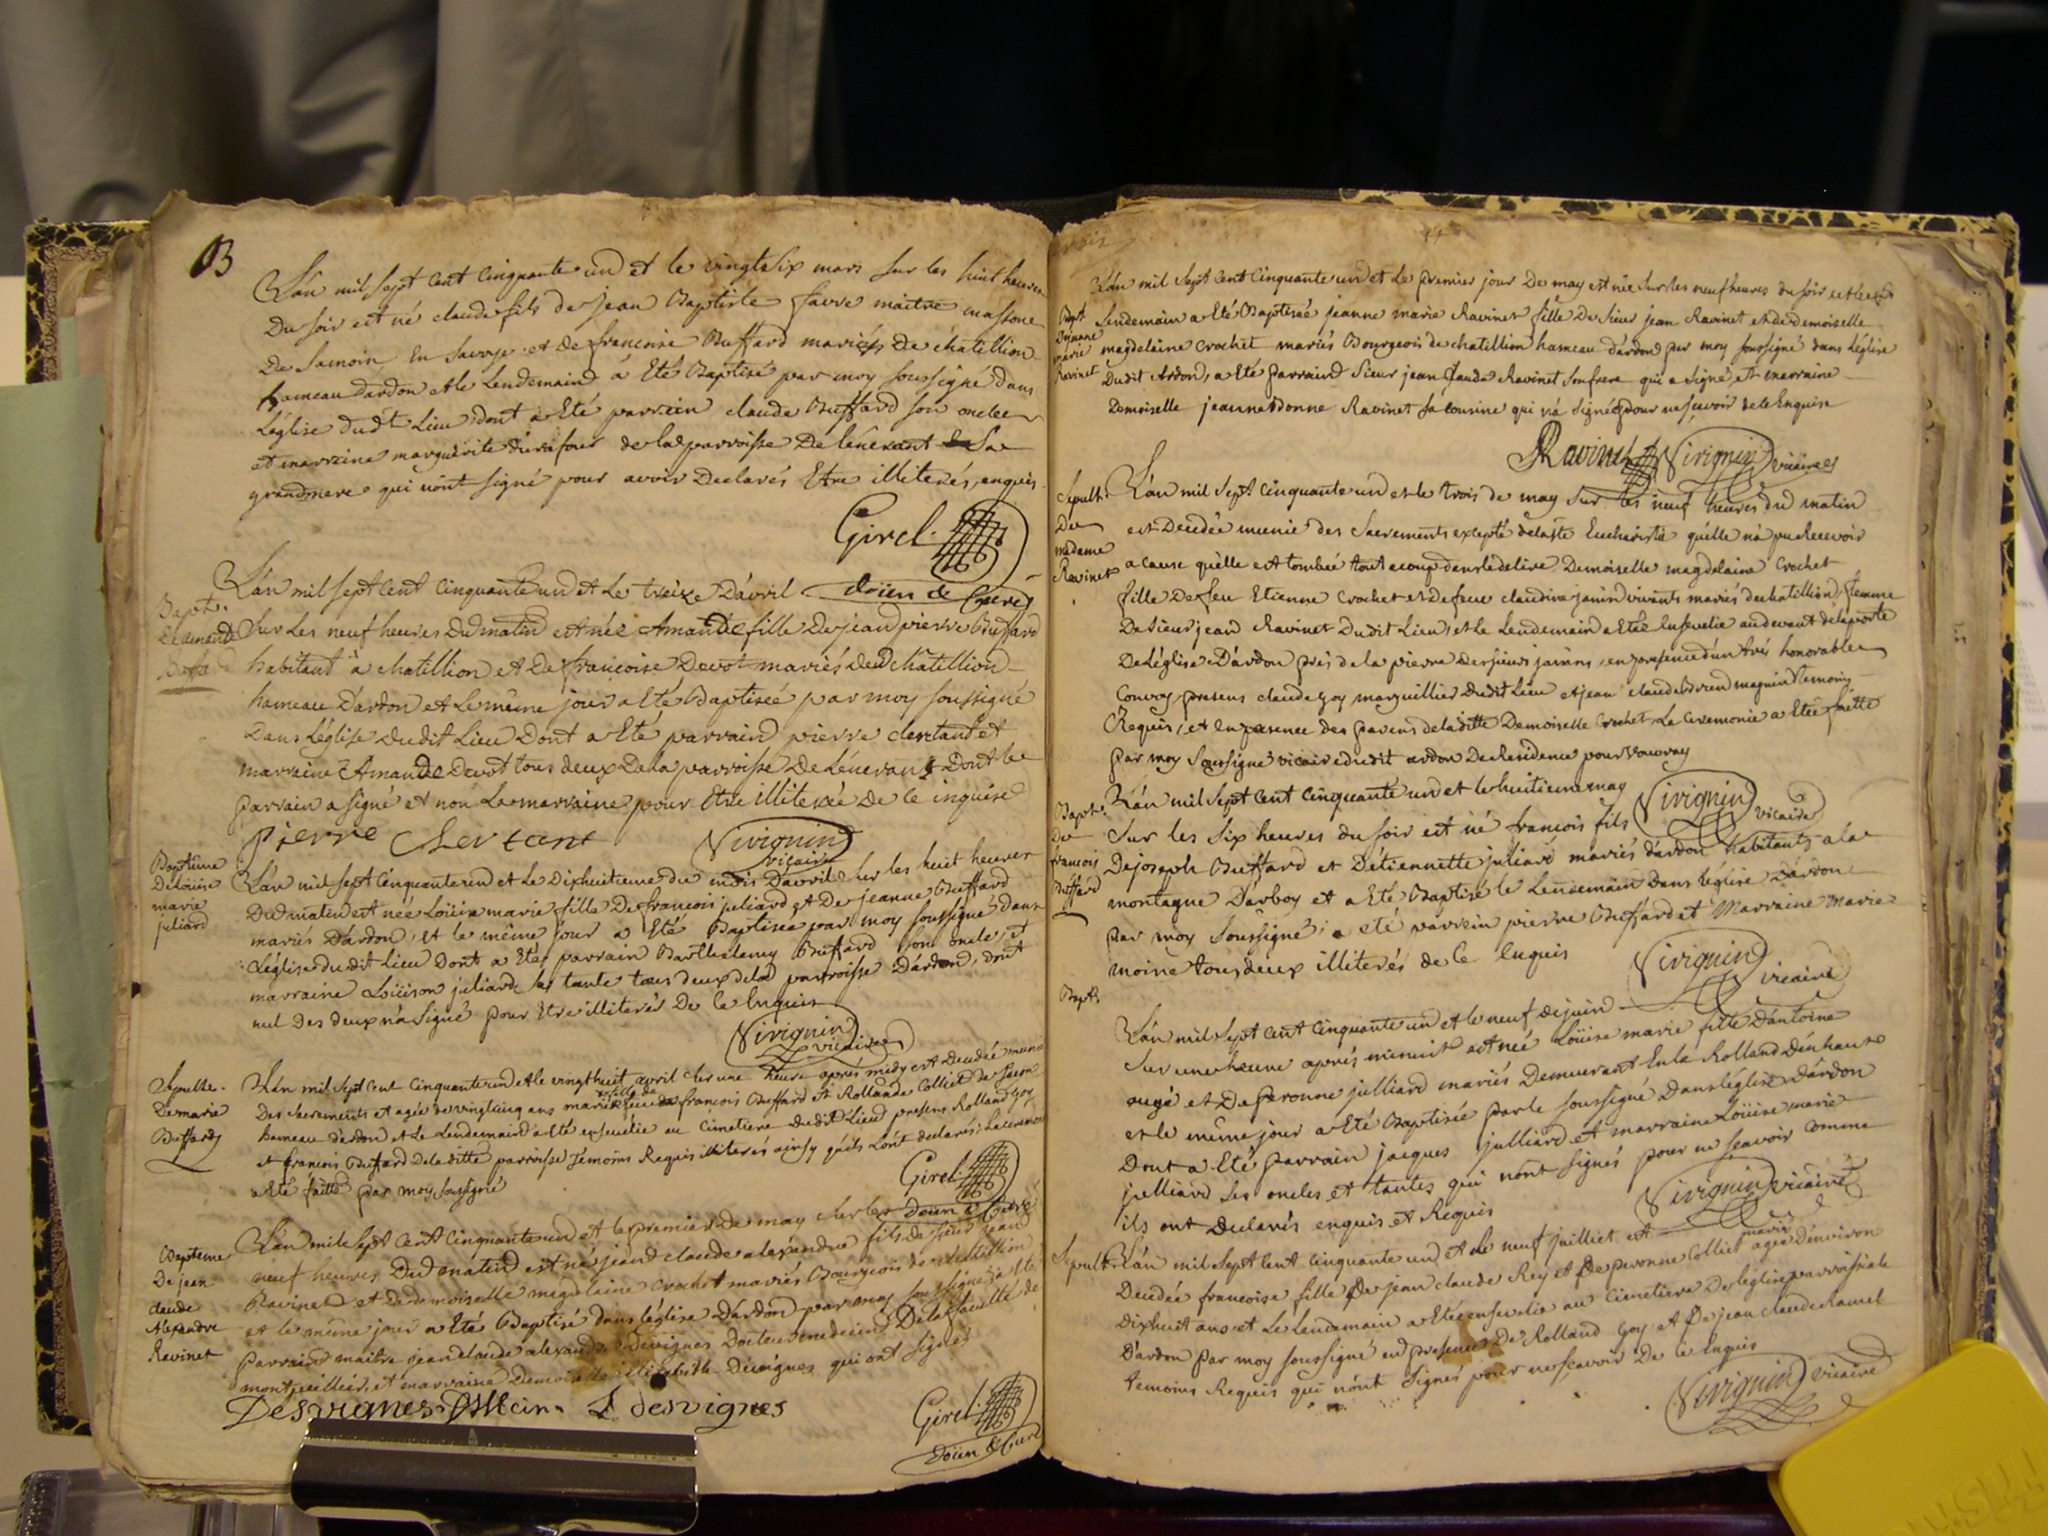 B
L'an mil sept cent cinquante un et le vingt six mars sur les huit heures
du soir est né claude fils de jean Baptiste favre maitre massone
De Samoin en Savoye et de françoise Buffard mariés De châtillion
hameau dardon et le Lendemain à Eté Baptisé par moy soussigné dans
L'église dudt Lieu dont a Eté parrain claude Buffard son oncle
et marraine marguerite de la parroisse De lenerant Sa
grandmere qui n'ont signé pour avoir Declarés Etre illiterés, enquis
Girel
doïen & Curé
L'an mil sept cent cinquante un et Le treize D'avril
Bapt.
D'amande
Buffard
Sur Les neuf heures Du matin est née Amande fille De jean pierre Buffard
habitant a chatillion et De françoise Devot mariés de châtillion
hameau D'ardon et Le même jour a Eté Baptisée par moy soussigné
Dans L'église Dudit Lieu Dont a Eté parrain pierre chertant et
marraine Amande Devot tous deux De la parroisse De Léneran Dont le
parrain a signé et non La marraine pour Etre illiterée De ce inquise
pierre chertant
Vivignin
vicaire
Baptême
De Loüise
marie
juliard
L'an mil sept cinquante un et Le Dixhuitieme du mois D'avril sur les huit heures
Du matin est née Loüise marie fille De francois juliard et De jeanne Buffard
mariés D'ardon, et le même jour a Eté Baptisée par moy soussigné dans
L'église du dit Lieu Dont a Eté parrain Barthelemy Buffard son oncle, et
marraine Loüison juliard Sa tante tous deux de la parroisse D'ardon, dont
nul Des deux n'a signé pour Etre illiterés De ce Enquis
Vivignin
vicaire
Sepult.
De marie
Buffard
L'an mil sept cent cinquante un et le vingthuit avril sur une heure après midy est Decedée munie
Des sacrements et agée de vingtcinq ans marie fille de francois Buffard et Rollande Colliet de
hameau d'ardon et Le Lendemain a Eté ensevelie au cimetiere dudit Lieu presens Rolland Goy
et francois Buffard De la ditte parroisse témoins Requis illiterés ainsy qu'ils L'ont declarés la ceremonie
a Eté faitte par moy soussigné
Girel
doïen & Curé
Baptême
De jean
claude
Alexandre
Ravinet
L'an mil sept cent cinquante un et le premier de may sur les
neuf heures Du matin est né jean claude alexandre fils de sieur jean
Ravinet et de demoiselle magdelaine crochet mariés Bourgeois de chatillion
et le même jour a Eté Baptisé dans l'église D'ardon par moy soussigné, a Eté
parrain maitre jean claude alexandre Devignes Docteur medecin De la faculté de
montpeillier, et marraine Demoiselle Elizabeth Devignes qui ont signés
Desvignes E desvignes
Girel
doïen & Curé
L'an mil Sept cent Cinquante un et Le premier jour De may est née sur les neuf heures du soir et le
Bapt.
De jeanne
marie
Ravinet
Lendemain a Eté Baptisée jeanne marie Ravinet fille De sieur jean Ravinet et de demoiselle
magdelaine crochet mariés Bourgeois de chatillion hameau d'ardon par moy soussigné dans L'église
Dudit Ardon, a Eté parrain sieur jean claude Ravinet son frere qui a signé, et marraine
Demoiselle jeanne Ravinet sa cousine qui n'a signé pour ne sçavoir de ce Enquise
Ravinet Vivignin vicaire
Sepult.
De
madame
Ravinet
L'an mil Sept cinquante un et le trois de may Sur les neuf heures du matin
est Decedée munie des Sacrements excepté de la ste Eucharistie qu'elle n'a pu Recevoir
a cause qu'elle est tombée tout a coup dans le delire Demoiselle magdelaine Crochet
fille De feu Etienne Crochet et De feue claudine janin vivants mariés de chatillion, femme
De sieur jean Ravinet Dudit Lieu, et Le Lendemain a Eté Ensevelie au devant de la porte
De L'église D'ardon près de la pierre des sieurs janins, en presence d'un très honorable
Convoy, presens claude goy marguillier Dudit Lieu et jean claude témoins
Requis, et en presence des parens de la ditte Demoiselle crochet, La Ceremonie a Eté faitte
par moy Soussigné vicaire dudit ardon De Residence pour
L'an mil sept cent cinquante un et le huitieme may
Vivignin
vicaire
Bapt.
De
françois
Buffard
Sur les six heures du soir est né francois fils
De joseph Buffard et D'étiennette juliard mariés d'ardon habitants a la
montagne D'arboy et a Eté Baptisé le Lendemain Dans l'église D'ardon
par moy Soussigné, a eté parrain pierre Buffard et Marraine marie
moine tous deux illiterés de ce Enquis
Vivignin
vicaire
Bapt.
L'an mil sept cent cinquante un et le neuf de juin
Sur une heure après minuit est née Loüise marie fille D'antoine
et De peronne julliard mariés Demeurant
et le même jour a Eté Baptisée par le soussigné Dans l'église D'ardon
Dont a Eté parrain jacques julliard et marraine Loüise marie
julliard Ses oncles et tantes qui n'ont signés pour ne sçavoir comme
ils ont Declarés enquis et Requis
Vivignin vicaire
Sepult.
L'an mil sept cent cinquante un et Le neuf juilliet est
Decedée francoise fille De jean claude Rey et De peronne Colliet mariés agée D'environ
Dixhuit ans et Le Lendemain a Eté ensevelie au Cimetiere De l'église parroissiale
D'ardon par moy soussigné en presence De Rolland Goy et De jean claude Ramel
temoins Requis qui n'ont signés pour ne sçavoir De ce Enquis
Vivignin vicaire